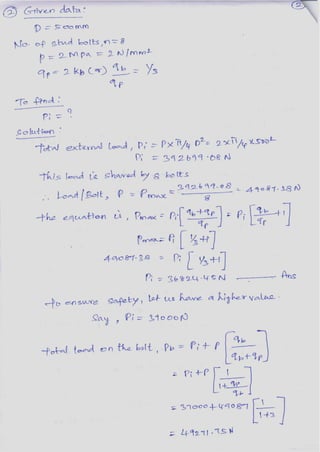 ② Given data:
②
D = 500mm
No. of stud bolts, n = 8
p = 2 MPa = 2 N/mm²
qp = 2 kb (or) qb/qp = 1/3
To find:
Pi = ?
Solution:
Total external load, Pi = P x π/4 D² = 2 x π/4 x 500²
Pi = 392699.08 N
This load is shared by 8 bolts
∴ Load/Bolt, P = Pmax = 392699.08/8 = 49087.38 N
the equation is, Pmax = Pi [qb+qp/qp] = Pi [qb/qp + 1]
Pmax = Pi [1/3 + 1]
49087.38 = Pi [1/3 + 1]
Pi = 36824.45 N Ans
To ensure safety, let us have a higher value.
Say, Pi = 37000 N
Total load on the bolt, Pb = Pi + P [qb/qb+qp]
= Pi + P [1/1+qp/qb]
= 37000 + 49087 [1/1+3]
= 49271.75 N